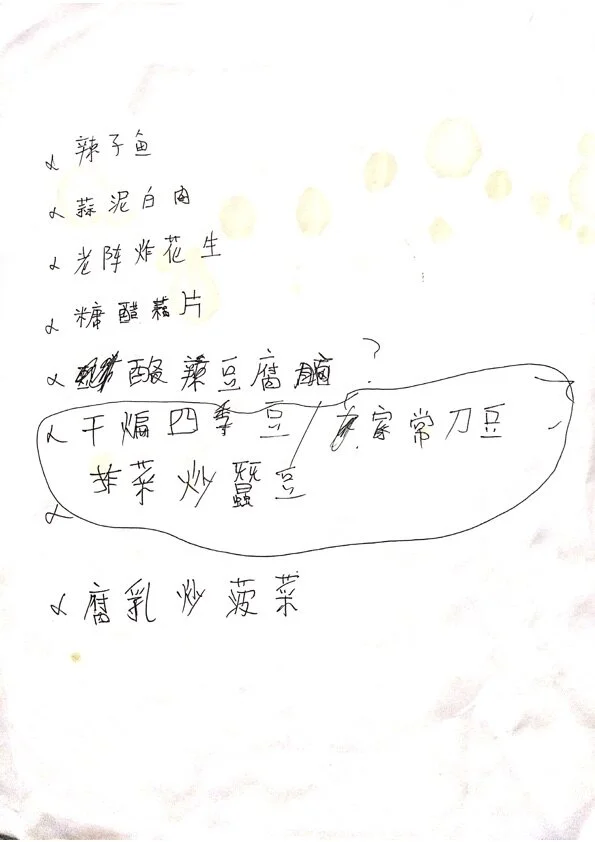 辣子鱼
蒜泥白肉
老陈炸花生
糖醋藕片
酸辣豆腐脑 ?
干煸四季豆 / 家常刀豆
韭菜炒蚕豆
腐乳炒菠菜